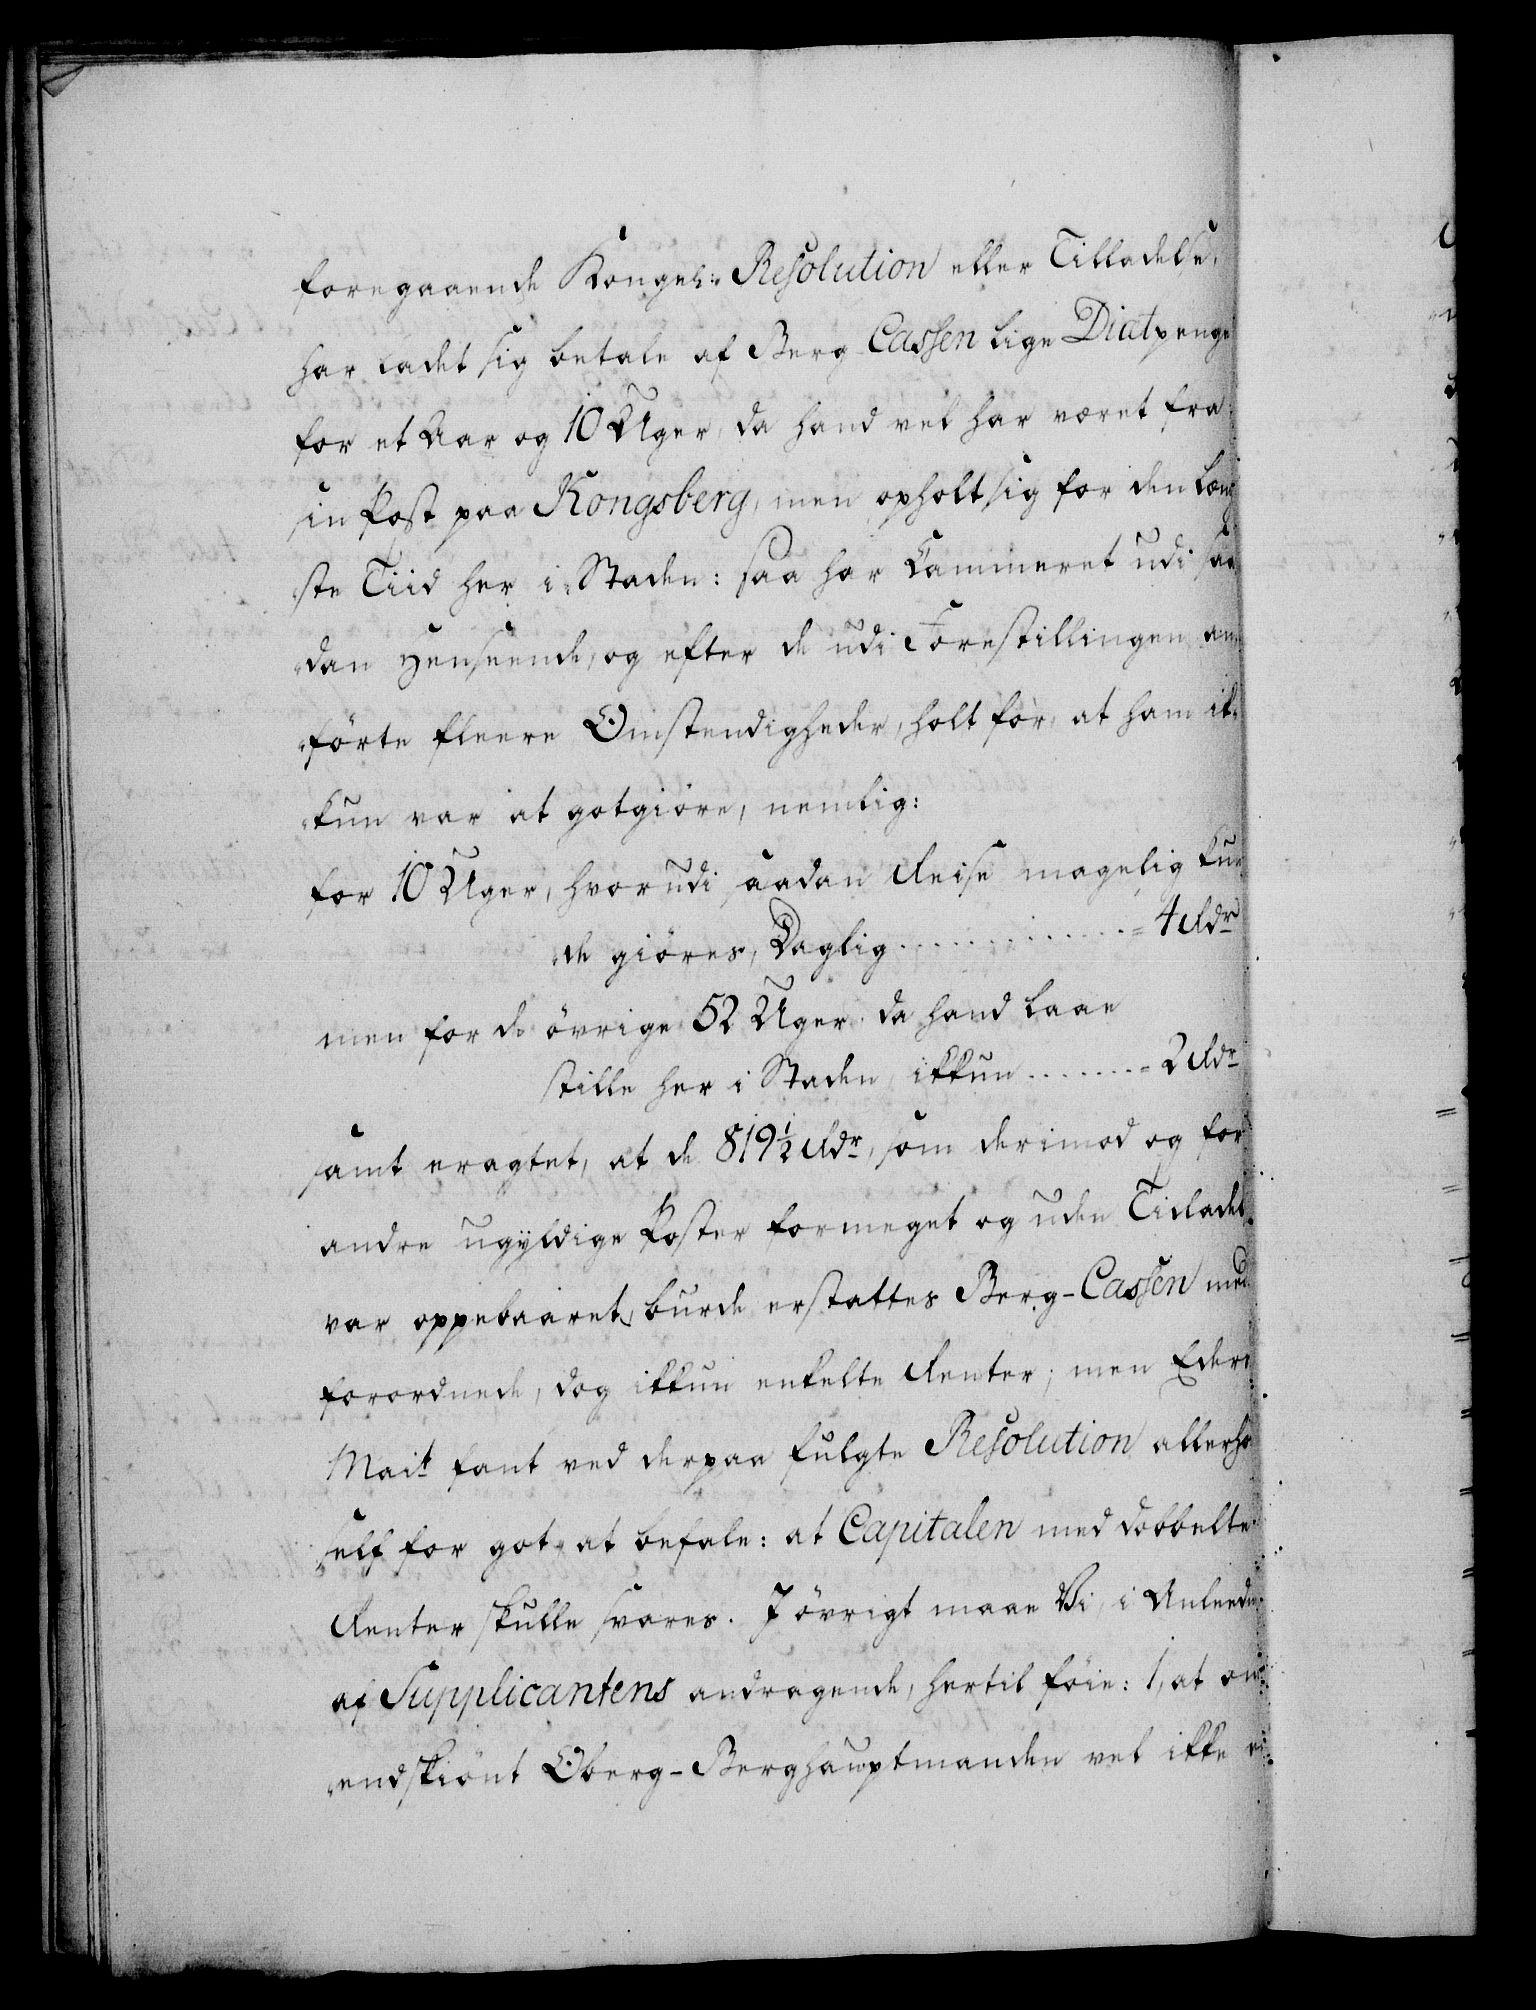 foregaaende Kongel: Resolution eller Tilladelse,
har ladet sig betale af Berg-Cassen lige Diætpenge
for et Aar og 10 Uger, da hand vel har været fra
sin Post paa Kongsberg, men opholt sig for den læng
ste Tiid her i Staden: saa har Cammeret udi saa
dan Henseende, og efter de udi Forestillingen an
förte fleere Omstendigheder, holt for, at ham ik-
kun var at gotgiöre, nemlig:
for 10 Uger, hvorudi saadan Reise magelig kun
de giöres, Daglig .............. 4 Rdr
men for de övrige 52 Uger, da hand laae
stille her i Staden, ikkun ........ 2 Rdr
samt eragtet, at de 819½ Rdr, som derimod og for
andre ugyldige Poster formeget og uden Tilladel-
var oppebaaret, burde erstattes Berg-Cassen med
forordnede, dog ikkun enkelte Renter; men Eders
Mait fant ved derpaa fulgte Resolution allerhö
self for got at befale: at Capitalen med dobbelte
Renter skulle svares. I övrigt maae Vi, i Anleedn
af Supplicantens andragende, hertil föie: 1, at om
endskiönt Oberg-Berghauptmanden vel ikke ei